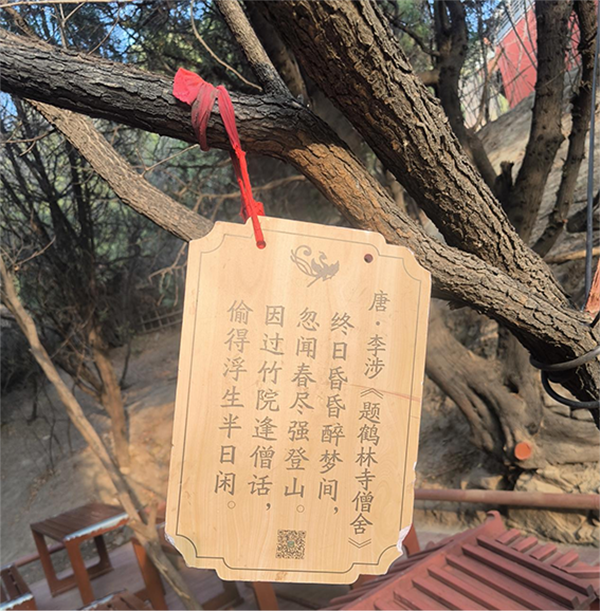 唐·李涉《题鹤林寺僧舍》
终日昏昏醉梦间，
忽闻春尽强登山。
因过竹院逢僧话，
偷得浮生半日闲。